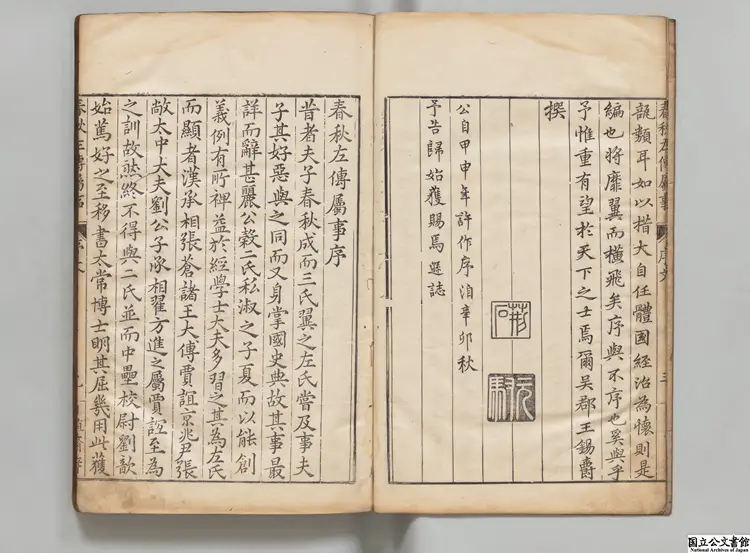 春秋左傳屬事 序文 三
瓿類耳如以措大自任體國經治為懷則是
編也將靡翼而橫飛矣序與不序也奚與乎
予惟重有望於天下之士焉爾吳郡王錫爵
撰
公自甲申年許作序洎辛卯秋
予告歸始獲賜焉遜誌
元馭
春秋左傳屬事序
昔者夫子春秋成而三氏翼之左氏嘗及事夫
子其好惡與之同而又身掌國史典故其事最
詳而辭甚麗公穀二氏私淑之子夏而以能創
義例有所裨益於經學士大夫多習之其為左氏
而顯者漢丞相張蒼諸王大傅賈誼京兆尹張
敞太中大夫劉公子丞相翟方進之屬賈誼至為
之訓故然終不得與二氏並而中壘校尉劉歆
始篤好之至移書太常博士明其屈幾用此獲
国立公文書館
National Archives of Japan